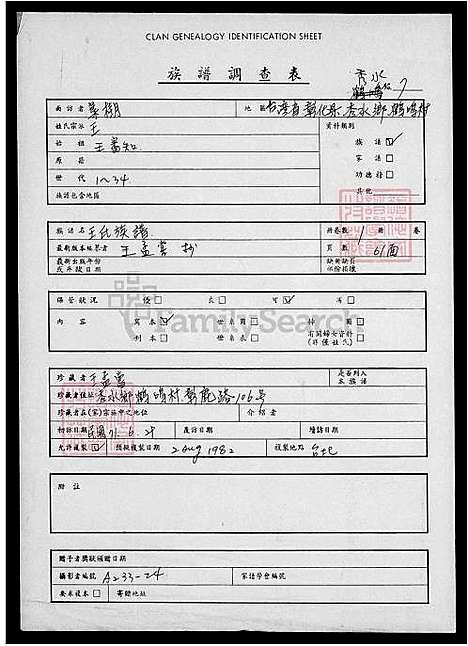 CLAN GENEALOGY IDENTIFICATION SHEET
族譜調查表
秀水
7
面訪者 葉 地區 台灣省彰化縣秀水鄉鶴鳴村
姓氏宗派 王 資料類別
始祖 王 知 族譜 ☑
原籍 家譜 □
世代 1~34 功德榜 □
族譜包含地區 其他
族譜名 王氏族譜 冊卷數 1 冊 卷
最新版本編纂者 王孟 抄 頁數 61面
最新出版年代或年破日期
保管狀況 優 □ 良 □ 可 ☑ 劣 □
內容 寫本 ☑ 世系圖 □ 神圖 □
刊本 □ 世系表 □ 有關婦女資料 □
FamilySearch
珍藏者 王孟 是否列入本族譜
珍藏者住址 秀水鄉鶴鳴村彰鹿路106号
珍藏者在(家)宗族中之地位 介紹者
初訪日期 民國71.6.28 覆訪日期 續訪日期
允許複製 ☑ 預擬複製日期 2 Aug 1982 複製地點 台北
附註
贈予者獎狀頒贈日期
攝影者編號 A233-24 家譜學會編號
要求複本 □ 寄贈地址